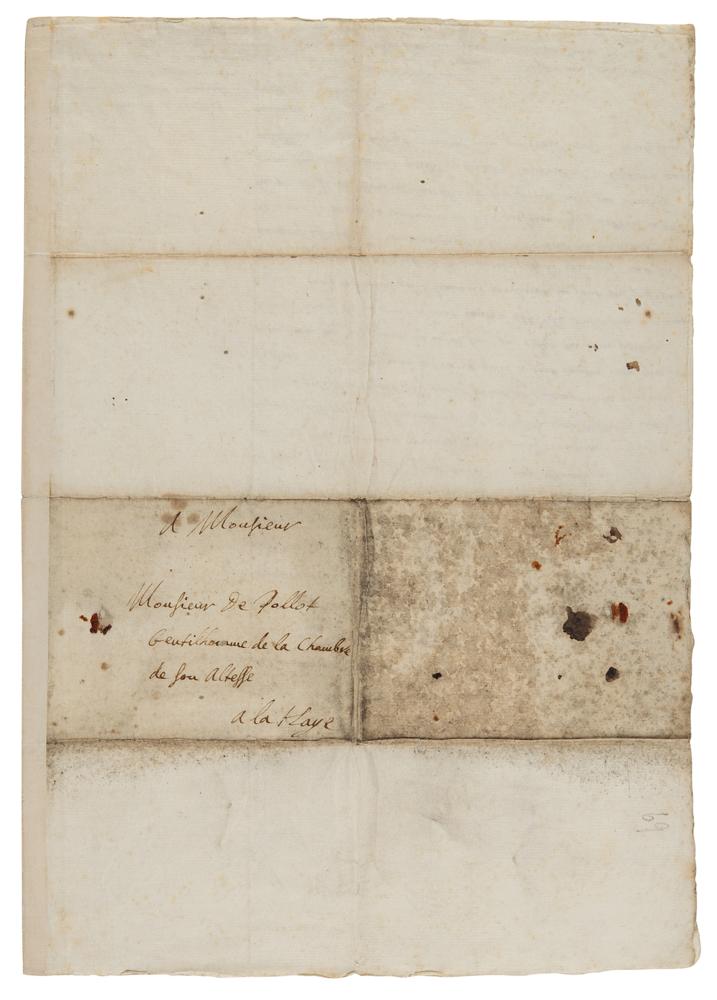 A Monsieur
Monsieur De Pollot
Gentilhomme de la Chambre
de son Altesse
a la Haye